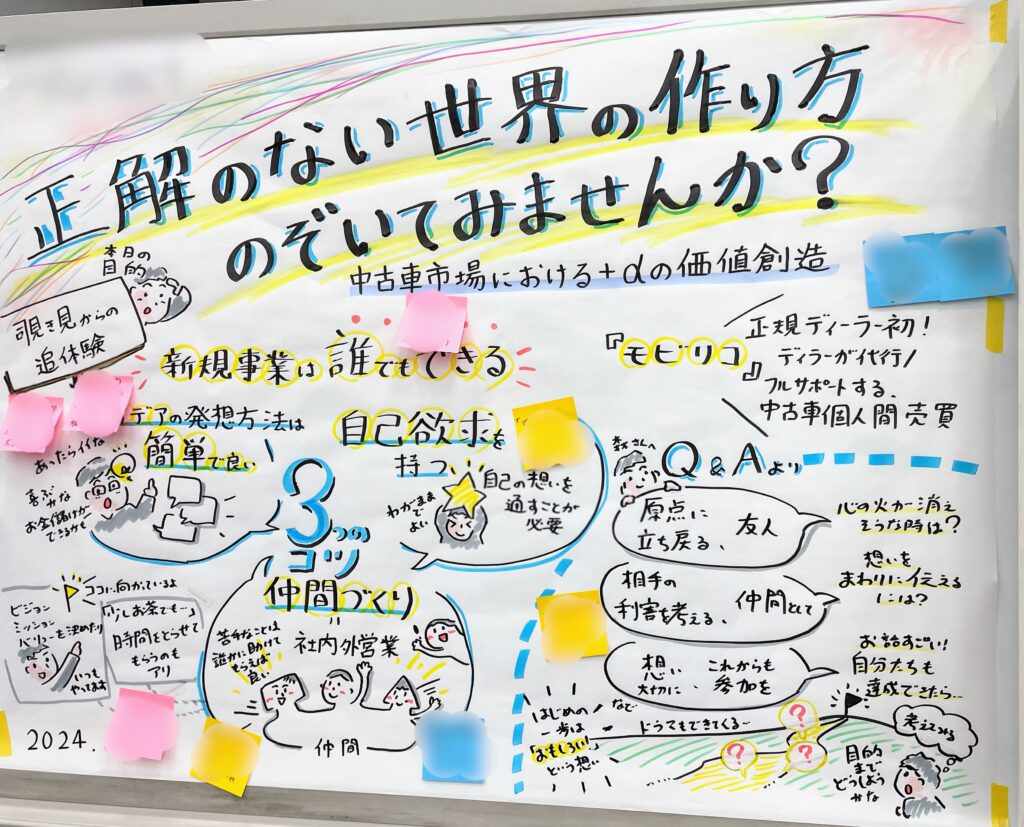 正解のない世界の作り方
のぞいてみませんか?
中古車市場における+αの価値創造
本日の
目的
覗き見からの
追体験
新規事業は誰でもできる
『モビリコ』
正規ディーラー初!
ディラーが代行/
フルサポートする、
中古車個人間売買
デアの発想方法は
簡単で良い
あったらイイな…
喜ぶかな
お金儲けが
できるかも
3つの
コツ
自己欲求を
持つ
わがまま
でよい
自己の想いを
通すことが
必要
仲間づくり
苦手なことは
誰かに助けて
もらえば
良い
社内外営業
仲間
ココに向かっているよ
ビジョン
ミッション
バリューを決めたり
いつも
やってます
「少しお茶でも…」
時間をとらせて
もらうのも
アリ
2024.
森さんへ
Q&Aより
原点に
立ち戻る、
友人
心の火が消え
そうな時は?
相手の
利害を考える、
仲間として
想いを
まわりに伝える
には?
想い
大切に、
これからも
参加を
お話すごい!
自分たちも
達成できたら…
はじめの
一歩は
「おもしろい!」
という想い
など
どうってもできてくる…
?
?
?
考えてみる
目的
まで
どうしよう
かな